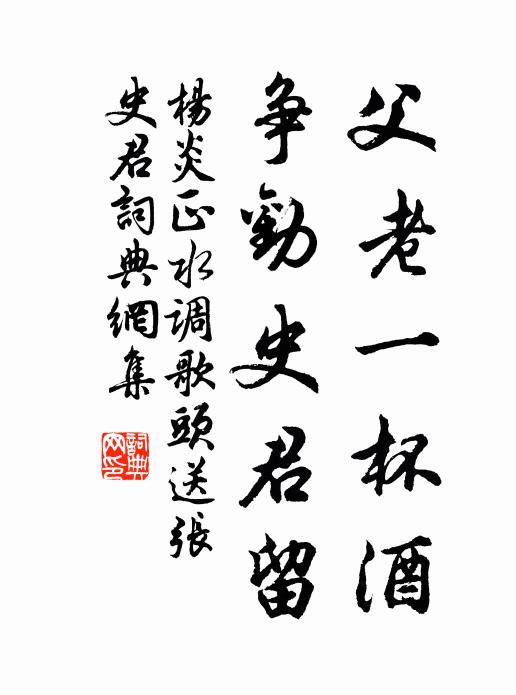 父老一杯酒
争勸史君留
楊炎正水调歌頭送張
史君詞典網集
詞典
网印